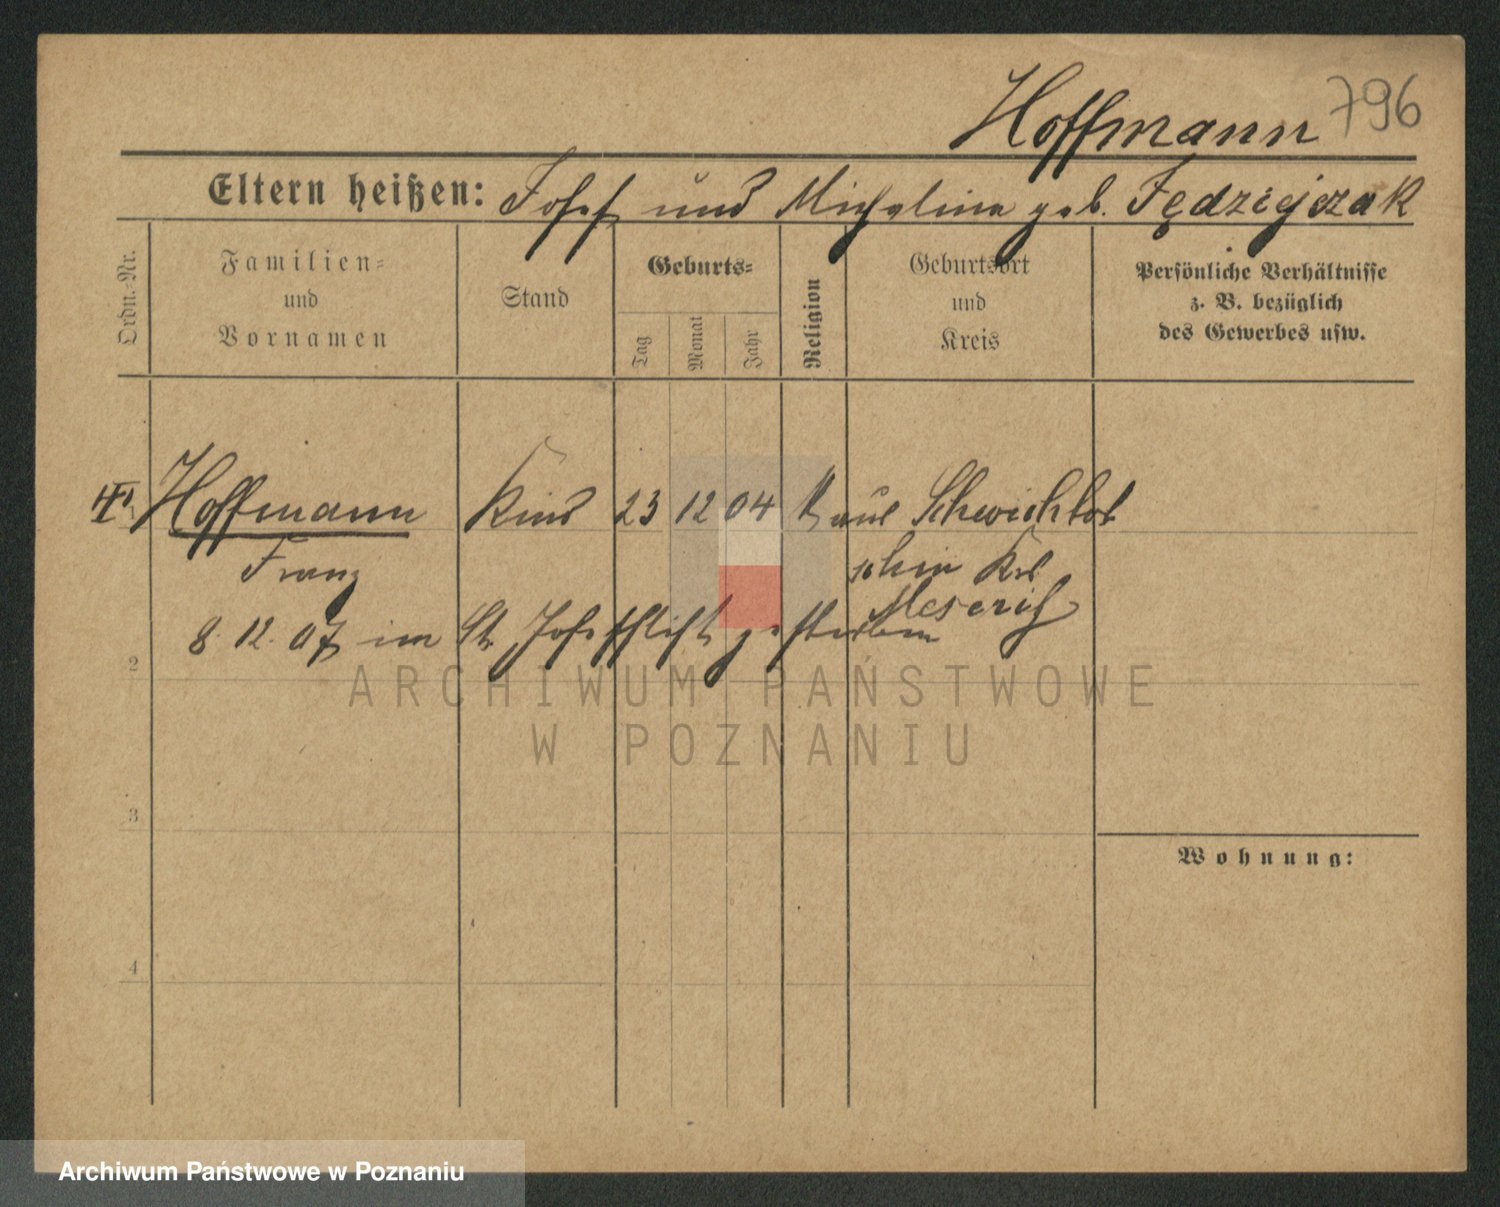 Hoffmann 796
Eltern heißen: Josef und Michalina geb. Fędziejczak
Ordn.-Nr.
Familien-
und
Vornamen
Stand
Geburts-
Tag
Monat
Jahr
Religion
Geburtsort
und
Kreis
Persönliche Verhältnisse
z. B. bezüglich
des Gewerbes usw.
Hoffmann Kind 23 12 04 K aus Schwichtot
Franz schin Krs
Meseritz
8. 12. 07 im St. Josefstift gestorben
2
3
4
Wohnung:
ARCHIWUM PAŃSTWOWE
W POZNANIU
Archiwum Państwowe w Poznaniu